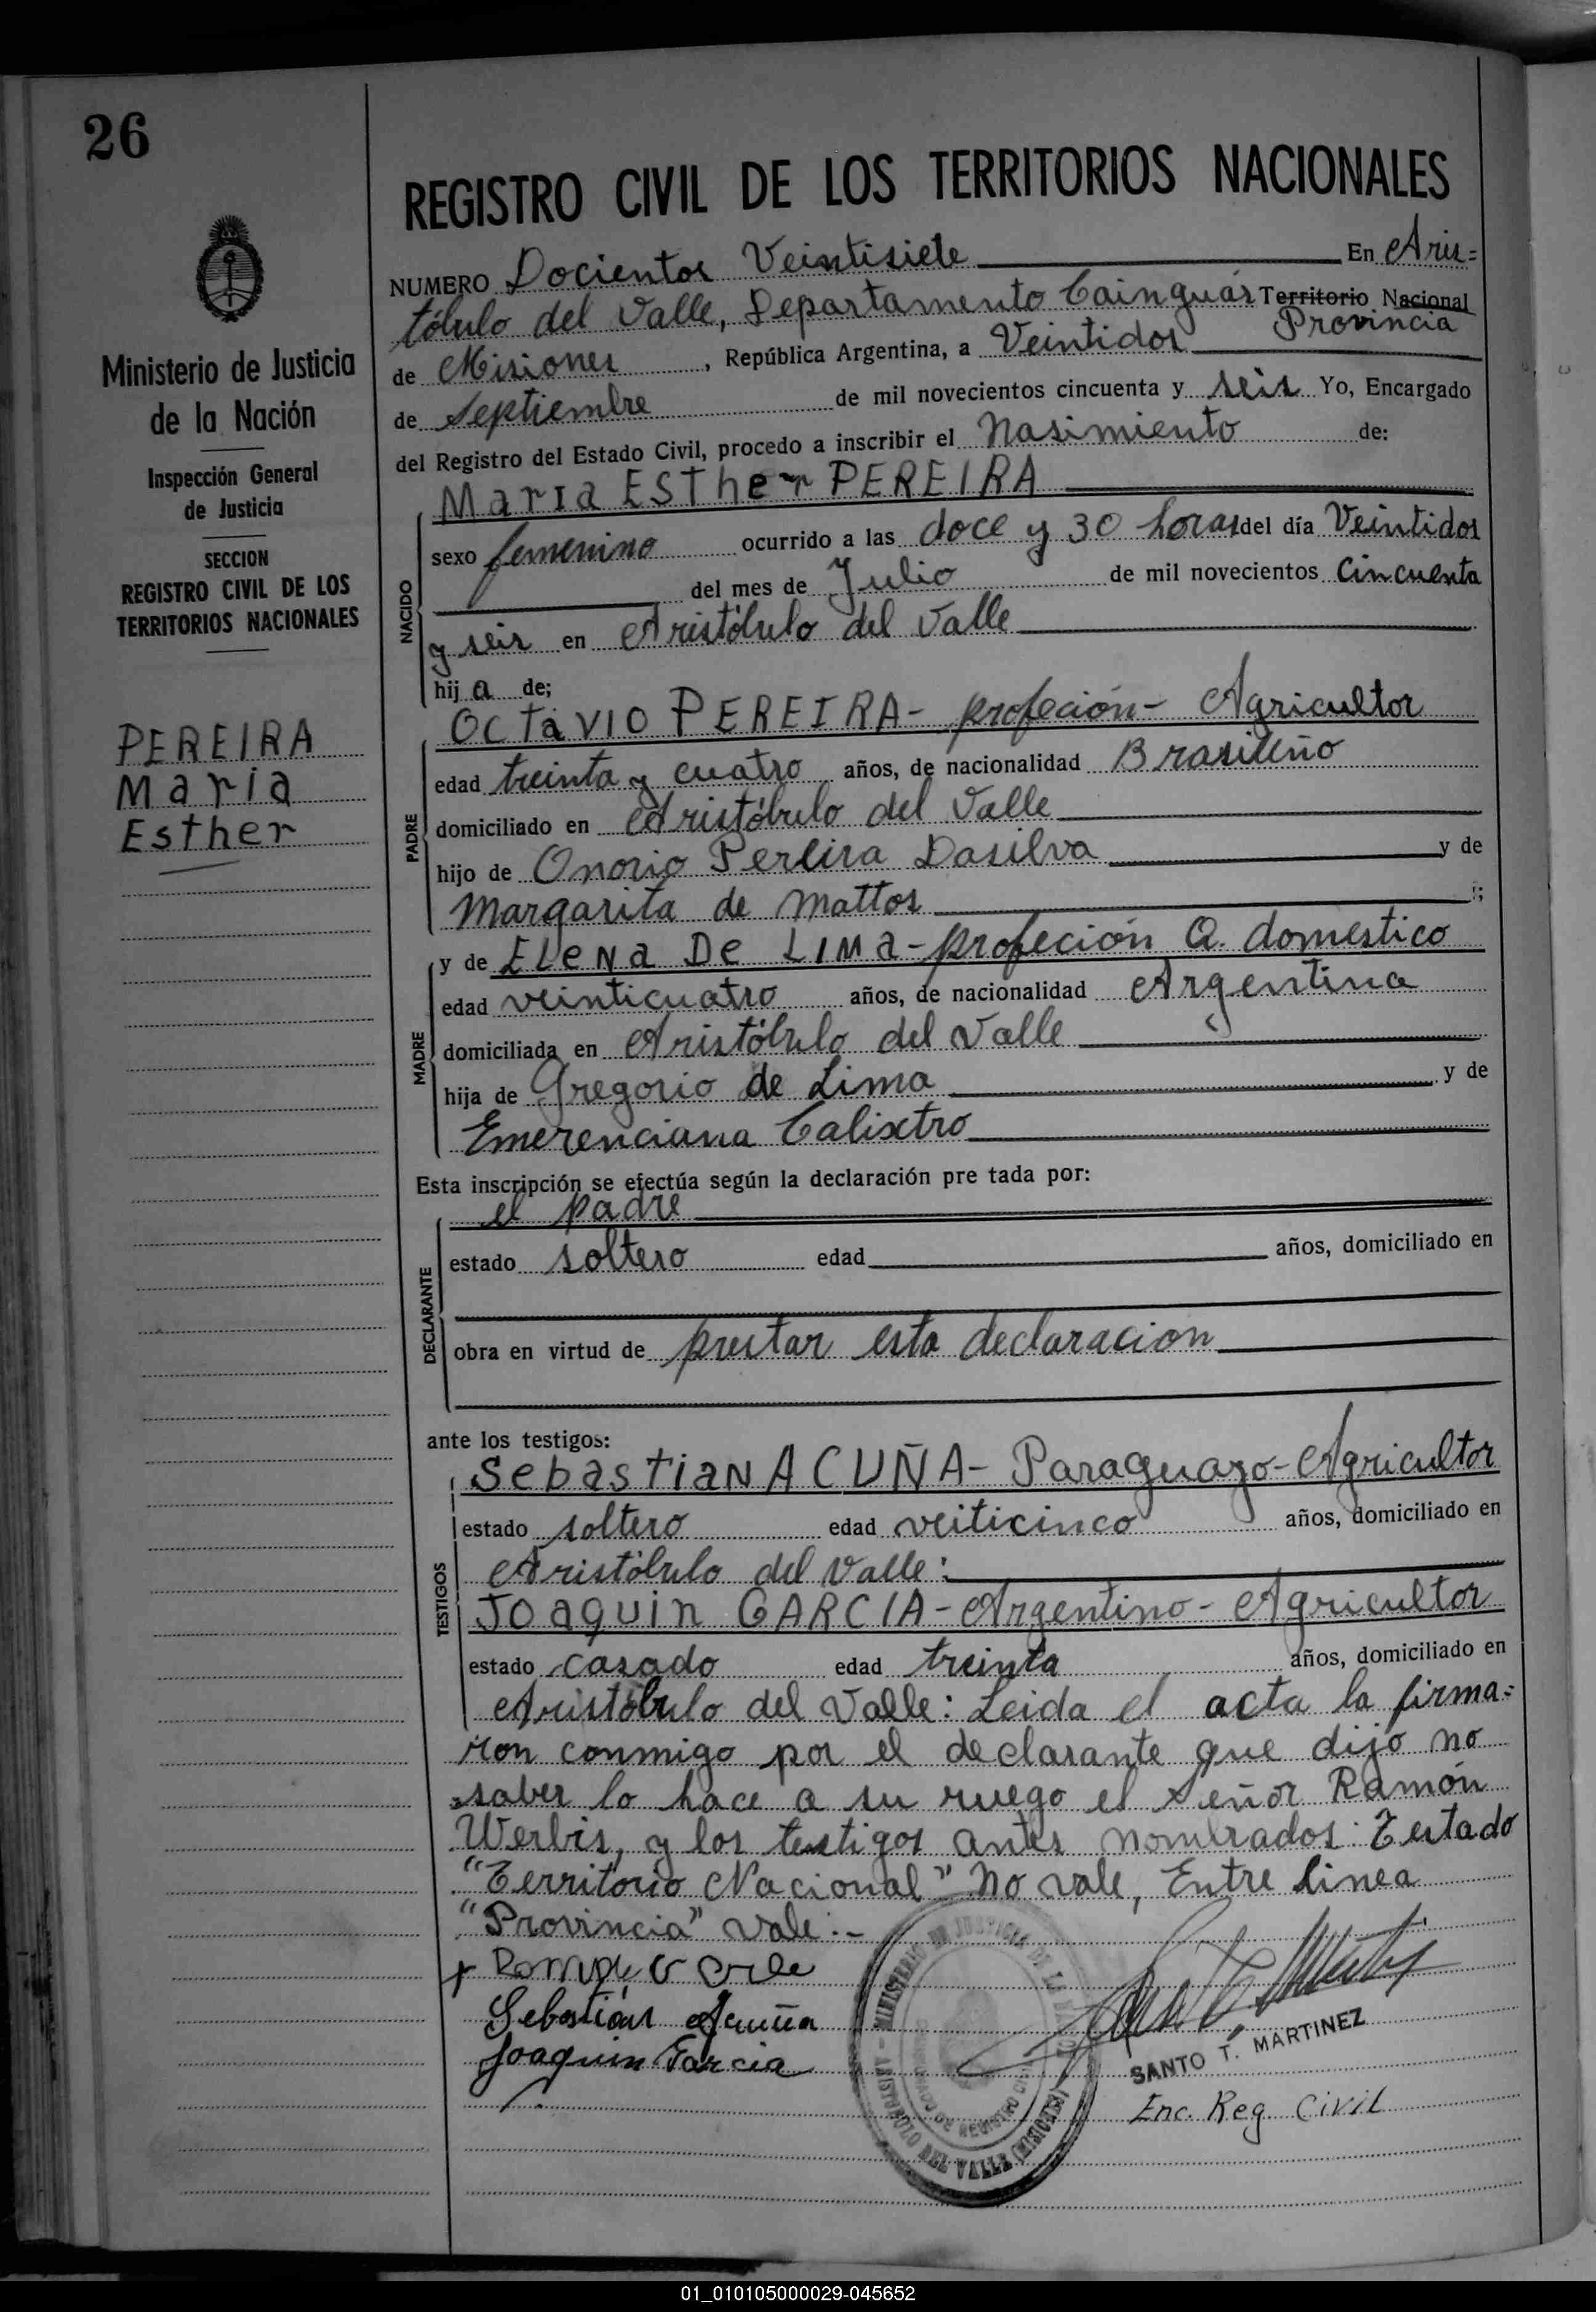 26
REGISTRO CIVIL DE LOS TERRITORIOS NACIONALES
Ministerio de Justicia
de la Nación
Inspección General
de Justicia
SECCION
REGISTRO CIVIL DE LOS
TERRITORIOS NACIONALES
PEREIRA
Maria
Esther
NUMERO Docientos Veintisiete En Aris=
tóbulo del Valle, Departamento Cainguás Territorio Nacional
Provincia
de Misiones, República Argentina, a Veintidos
de Septiembre de mil novecientos cincuenta y seis Yo, Encargado
del Registro del Estado Civil, procedo a inscribir el Nasimiento de:
Maria ESTher PEREIRA
NACIDO
sexo femenino ocurrido a las doce y 30 horas del día Veintidos
del mes de Julio de mil novecientos Cincuenta
y seis en Aristóbulo del Valle
hij a de;
PADRE
OCTAVIO PEREIRA - profeción - Agricultor
edad treinta y cuatro años, de nacionalidad Brasileño
domiciliado en Aristóbulo del Valle
hijo de Onorio Pereira Dasilva y de
Margarita de Mattos ;
MADRE
y de ELeNa De LIMa - profeción Q. domestico
edad veinticuatro años, de nacionalidad Argentina
domiciliada en Aristóbulo del Valle
hija de Gregorio de Lima y de
Emerenciana Calixtro
Esta inscripción se efectúa según la declaración pre tada por:
DECLARANTE
el padre
estado soltero edad años, domiciliado en
obra en virtud de prestar esta declaración
ante los testigos:
TESTIGOS
SebasTiaN ACUÑA - Paraguayo - Agricultor
estado soltero edad veiticinco años, domiciliado en
Aristóbulo del Valle:
Joaquin GARCIA - Argentino - Agricultor
estado casado edad treinta años, domiciliado en
Aristóbulo del Valle: Leida el acta la firma=
ron conmigo por el declarante que dijo no
saber lo hace a su ruego el señor Ramón
Werbis, y los testigos antes nombrados: Testado
"Territorio Nacional" no vale, Entre linea
"Provincia" vale.-
Sebastián Acuña
Joaquin Garcia
MINISTERIO DE JUSTICIA DE LA
ARISTOBULO DEL VALLE (MISIONES)
SANTO T. MARTINEZ
Enc. Reg. Civil
01_010105000029-045652